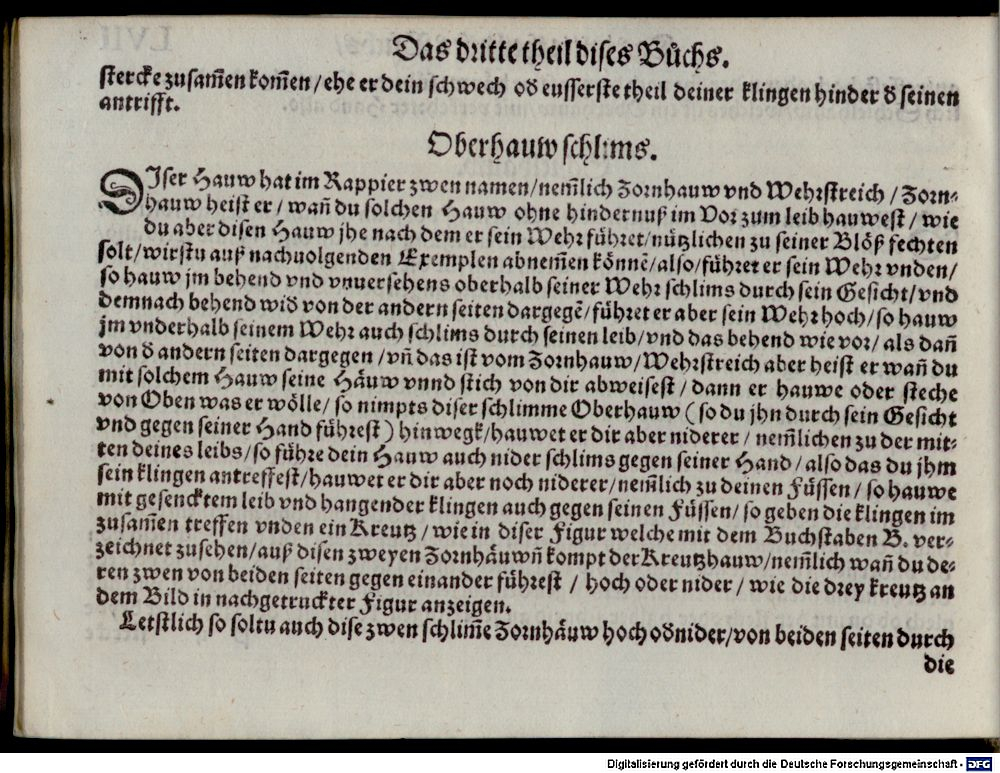 Das dritte theil dises Bůchs.
stercke zusam̃en kom̃en / ehe er dein schwech od̕ eusserste theil deiner klingen hinder d̕ seinen
antrifft.
Oberhauw schlims.
DIser Hauw hat im Rappier zwen namen / nem̃lich Zornhauw vnd Wehrstreich / Zorn⸗
hauw heist er / wañ du solchen Hauw ohne hindernuß im Vor zum leib hauwest / wie
du aber disen Hauw jhe nach dem er sein Wehr führet / nützlichen zu seiner Blöß fechten
solt / wirstu auß nachuolgenden Exemplen abnem̃en könnẽ / also / führet er sein Wehr vnden /
so hauw jm behend vnd vnuersehens oberhalb seiner Wehr schlims durch sein Gesicht / vnd
demnach behend wid̕ von der andern seiten dargegẽ / führet er aber sein Wehr hoch / so hauw
jm vnderhalb seinem Wehr auch schlims durch seinen leib / vnd das behend wie vor / als dañ
von d̕ andern seiten dargegen / vñ das ist vom Zornhauw / Wehrstreich aber heist er wañ du
mit solchem Hauw seine Häuw vnnd stich von dir abweisest / dann er hauwe oder steche
von Oben was er wölle / so nimpts diser schlimme Oberhauw ( so du jhn durch sein Gesicht
vnd gegen seiner Hand führest ) hinwegk / hauwet er dir aber niderer / nem̃lichen zu der mit⸗
ten deines leibs / so führe dein Hauw auch nider schlims gegen seiner Hand / also das du jhm
sein klingen antreffest / hauwet er dir aber noch niderer / nem̃lich zu deinen Füssen / so hauwe
mit gesencktem leib vnd hangender klingen auch gegen seinen Füssen / so geben die klingen im
zusam̃en treffen vnden ein Kreutz / wie in diser Figur welche mit dem Buchstaben B. ver⸗
zeichnet zusehen / auß disen zweyen Zornhäuwñ kompt der Kreutzhauw / nem̃lich wañ du de⸗
ren zwen von beiden seiten gegen einander führest / hoch oder nider / wie die drey kreutz an
dem Bild in nachgetruckter Figur anzeigen.
Letstlich so soltu auch dise zwen schlim̃e Zornhäuw hoch od̕ nider / von beiden seiten durch
die
Digitalisierung gefördert durch die Deutsche Forschungsgemeinschaft - DFG